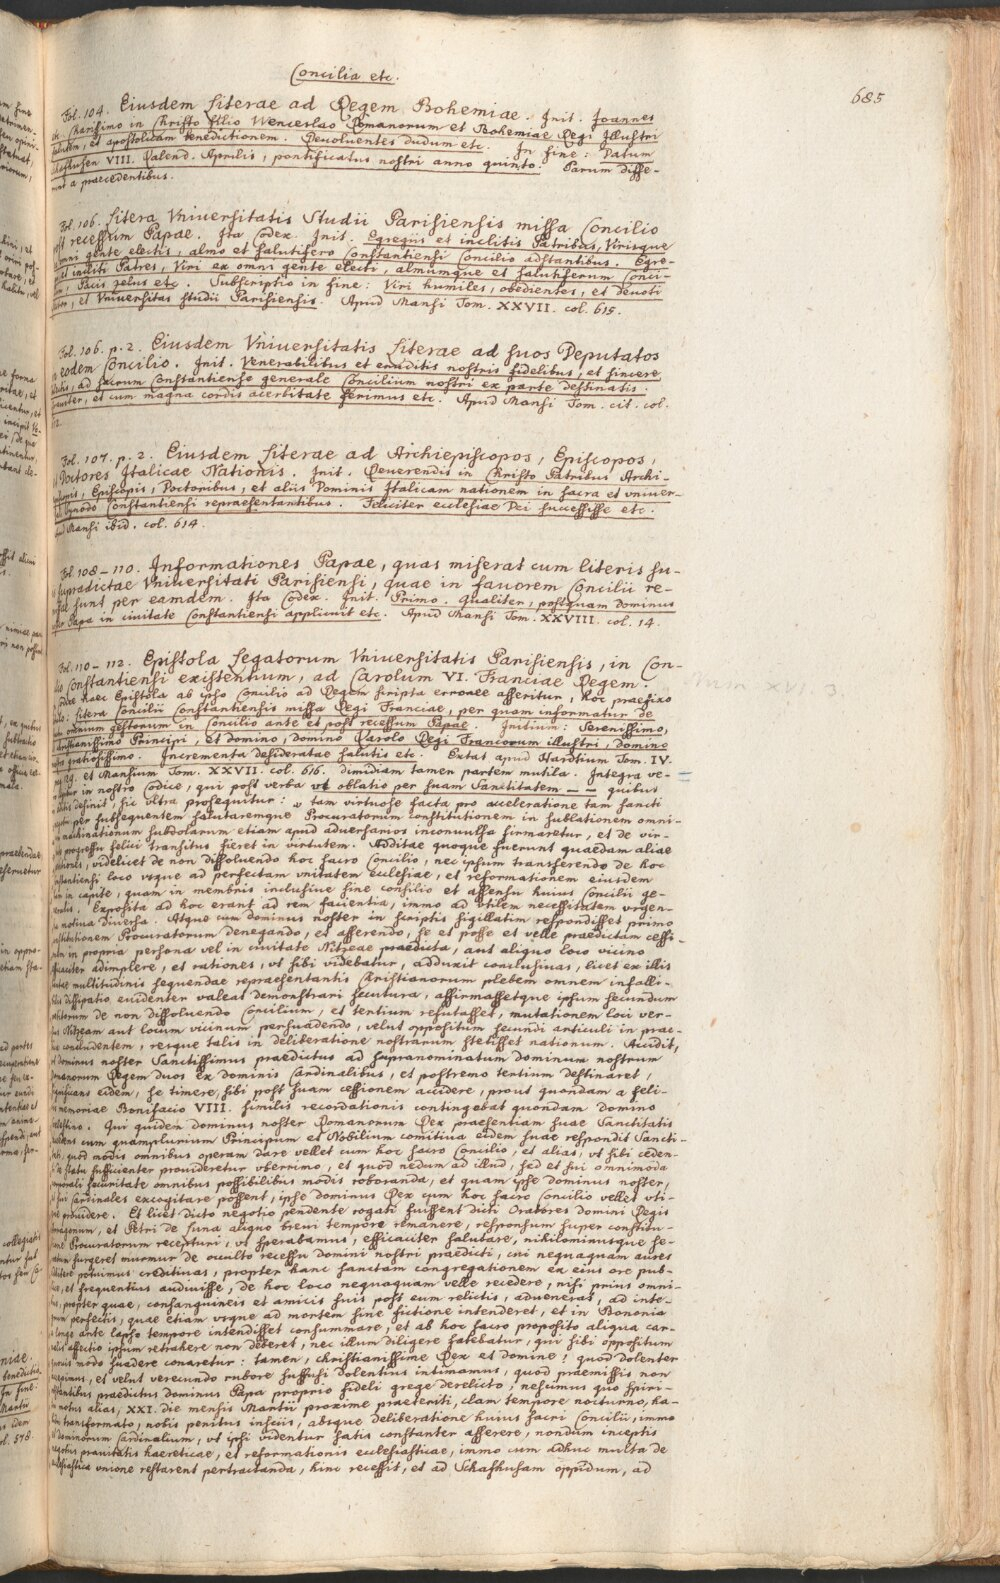 Concilia etc.
685
Fol. 104. Eiusdem literae ad Regem Bohemiae. Init. Joannes
etc. Charissimo in Christo filio Wenceslao Romanorum et Bohemiae Regi Illustri
salutem, et apostolicam benedictionem. Reuoluentes dudum etc. In fine: Datum
Schafhusen VIII. Kalend. Aprilis, pontificatus nostri anno quinto. Parum diffe-
runt a praecedentibus.
Fol. 106. Litera Vniuersitatis Studii Parisiensis missa Concilio
post recessum Papae. Ita Codex. Init. Egregiis et inclitis Patribus, Virisque
omni gente electis, almo et salutifero Constantiensi Concilio adstantibus. Egre-
et incliti Patres, Viri ex omni gente electi, almumque et salutiferum Conci-
Pacis zelus etc. Subscriptio in fine: Viri humiles, obedientes, et deuoti
et Vniuersitas studii Parisiensis. Apud Mansi Tom. XXVII. col. 615.
Fol. 106. p. 2. Eiusdem Vniuersitatis Literae ad suos Deputatos
in eodem Concilio. Init. Venerabilibus et eruditis nostris fidelibus, et sincere
ad sacrum Constantiense generale Concilium nostri ex parte destinatis.
et cum magna cordis acerbitate ferimus etc. Apud Mansi Tom. cit. col.
Fol. 107. p. 2. Eiusdem literae ad Archiepiscopos, Episcopos,
et Doctores Italicae Nationis. Init. Reuerendis in Christo Patribus Archi-
episcopis, Episcopis, Doctoribus, et aliis Dominis Italicam nationem in sacra et vniuer-
Synodo Constantiensi repraesentantibus. Feliciter ecclesiae Dei successisse etc.
apud Mansi ibid. col. 614.
Fol. 108-110. Informationes Papae, quas miserat cum literis su-
is supradictae Vniuersitati Parisiensi, quae in fauorem Concilii re-
sunt per eamdem. Ita Codex. Init. Primo. Qualiter, postquam dominus
noster Papa in ciuitate Constantiensi applicuit etc. Apud Mansi Tom. XXVIII. col. 14.
Fol. 110-112. Epistola Legatorum Vniuersitatis Parisiensis, in Con-
cilio Constantiensi existentium, ad Carolum VI. Franciae Regem.
haec Epistola ab ipso Concilio ad Regem scripta erronee asseritur, hoc praefixo
titulo: Litera Concilii Constantiensis missa Regi Franciae, per quam informatur de
omnium gestorum in Concilio ante et post recessum Papae. Initium: Serenissimo,
Christianissimo Principi, et domino, domino Carolo Regi Francorum illustri, domino
gratiosissimo. Incrementa desideratae salutis etc. Extat apud Hardtium Tom. IV.
et Mansium Tom. XXVII. col. 616. dimidiam tamen partem mutila. Integra ve-
in nostro Codice, qui post verba vt oblatio per suam Sanctitatem -- quibus
definit, sic vltra prosequitur: „ tam virtuose facta pro acceleratione tam sancti
per subsequentem salutaremque Procuratorum constitutionem in sublationem omni-
machinationum subdolarum etiam apud aduersarios inconuulsa firmaretur, et de vir-
progressu felici transitus fieret in virtutem. Additae quoque fuerunt quaedam aliae
videlicet de non dissoluendo hoc sacro Concilio, nec ipsum transferendo de hoc
Constantiensi loco vsque ad perfectam vnitatem ecclesiae, et reformationem eiusdem
in capite, quam in membris inclusiue sine consilio et assensu huius Concilii ge-
neralis. Exposita ad hoc erant ad rem facientia, immo ad vtilem necessitatem vrgen-
motiua diuersa. Atque cum dominus noster in scriptis sigillatim respondisset primo
constitutionem Procuratorum denegando, et asserendo, se et posse et velle praedictam cessi-
in propria persona vel in ciuitate Nitzeae praedicta, aut aliquo loco vicino
efficaciter adimplere, et rationes, vt sibi videbatur, adduxit conclusiuas, licet ex illis
multitudinis sequendae repraesentantis Christianorum plebem omnem infalli-
bilis dissipatio euidenter valeat demonstrari secutura, affirmassetque ipsum secundum
de non dissoluendo Concilium, et tertium refutasset, mutationem loci ver-
sus Nitzeam aut locum vicinum persuadendo, velut oppositum secundi articuli in prae-
concludentem, resque talis in deliberatione nostrarum stetisset nationum. Accidit,
vt dominus noster Sanctissimus praedictus ad supranominatum dominum nostrum
Romanorum Regem duos ex dominis Cardinalibus, et postremo tertium destinaret,
significans eidem, se timere, sibi post suam cessionem accidere, prout quondam a feli-
cis memoriae Bonifacio VIII. similis recordationis contingebat quondam domino
Celestino. Qui quidem dominus noster Romanorum Rex praesentiam suae Sanctitatis
cum quamplurium Principum et Nobilium comitiua eidem suae respondit Sancti-
tati, quod modis omnibus operam dare vellet cum hoc sacro Concilio, et alias, vt sibi ceden-
ti de statu sufficienter prouideretur vberrimo, et quod nedum ad illud, sed et sui omnimoda
securitate omnibus possibilibus modis roboranda, et quam ipse dominus noster,
et sui Cardinales excogitare possent, ipse dominus Rex cum hoc sacro Concilio vellet vti-
prouidere. Et licet dicto negotio pendente rogati fuissent dicti Oratores domini Regis
Arragonum, et Petri de Luna aliquo breui tempore remanere, responsum super constitu-
tione Procuratorum recepturi, vt sperabamus, efficaciter salutare, nihilominusque se-
surgeret murmur de occulto recessu domini nostri praedicti, cui nequaquam aures
potuimus creditiuas, propter hanc sanctam congregationem ex eius ore pub-
et frequentius audiuisse, de hoc loco nequaquam velle recedere, nisi prius omni-
bus, propter quae, consanguineis et amicis suis post eum relictis, aduenerat, ad inte-
grum perfectis, quae etiam vsque ad mortem sine fictione intenderet, et in Bononia
longe ante lapso tempore intendisset consummare, et ab hoc sacro proposito aliqua car-
nalis affectio ipsum retrahere non deberet, nec illum diligere fatebatur, qui sibi oppositum
modo suadere conaretur: tamen, christianissime Rex et domine! quod dolenter
et velut verecundo rubore suffusi dolentius intimamus, quod praemissis non
obstantibus praedictus dominus Papa proprio fideli grege derelicto, nescimus quo spiri-
tu motus alias, XXI. die mensis Martii proxime praeteriti, clam tempore nocturno, ha-
bitu transformato, nobis penitus insciis, absque deliberatione huius sacri Concilii, immo
et dominorum Cardinalium, vt ipsi videntur satis constanter asserere, nondum inceptis
prauitatis haereticae, et reformationis ecclesiasticae, immo cum adhuc multa de
ecclesiastica vnione restarent pertractanda, hinc recessit, et ad Schafhusam oppidum, ad